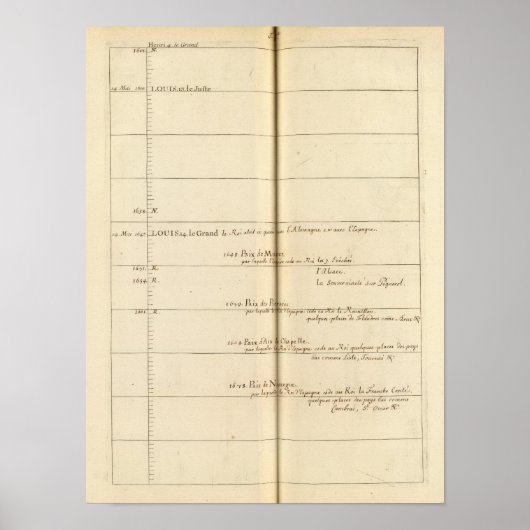 Henri 4. le Grand
1601. N.
14. Mai 1610 LOUIS 13. le Juste
1638. N.
14. Mai 1643 LOUIS 14. le Grand le Roi etoit en guerre avec l'Alemagne et avec l'Espagne.
1648. Paix de Munster
par laquelle l'Empire cede au Roi les 3. Evêchés
1651. R. l'Alsace.
1654. R. La Souveraineté sur Pignerol.
1659. Paix des Pyrénées
par laquelle l'Espagne cede au Roi le Roussillon
1661 R. quelques places de Flandres comme Arras &c
1668. Paix d'Aix la Chapelle.
par laquelle le Roi d'Espagne cede au Roi quelques places des pays
bas comme Lisle, Tournai &c
1678. Paix de Nimegue.
par laquelle le Roi d'Espagne cede au Roi la Franche Comté.
quelques places des pays bas comme
Cambrai, St. Omer &c